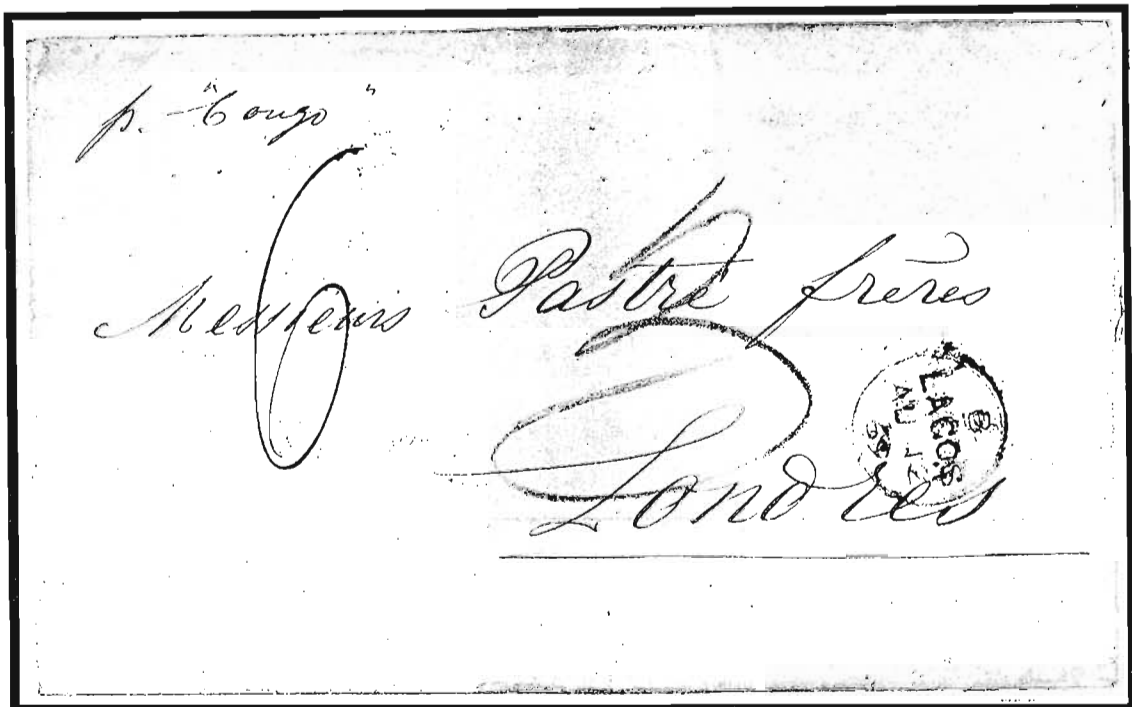 p. "Congo"
6
Messieurs Pastré frères
Londres
B
LAGOS
AU